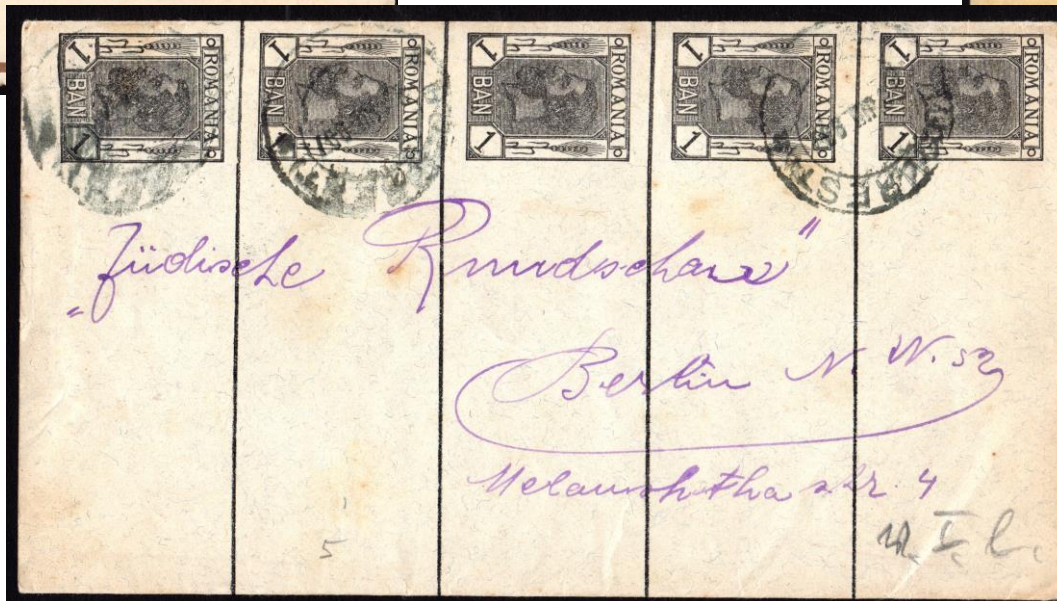 1 ROMANIA BAN 1
1 ROMANIA BAN 1
1 ROMANIA BAN 1
1 ROMANIA BAN 1
1 ROMANIA BAN 1
„Jüdische Rundschau"
Berlin N. W. 52
str. 4
5